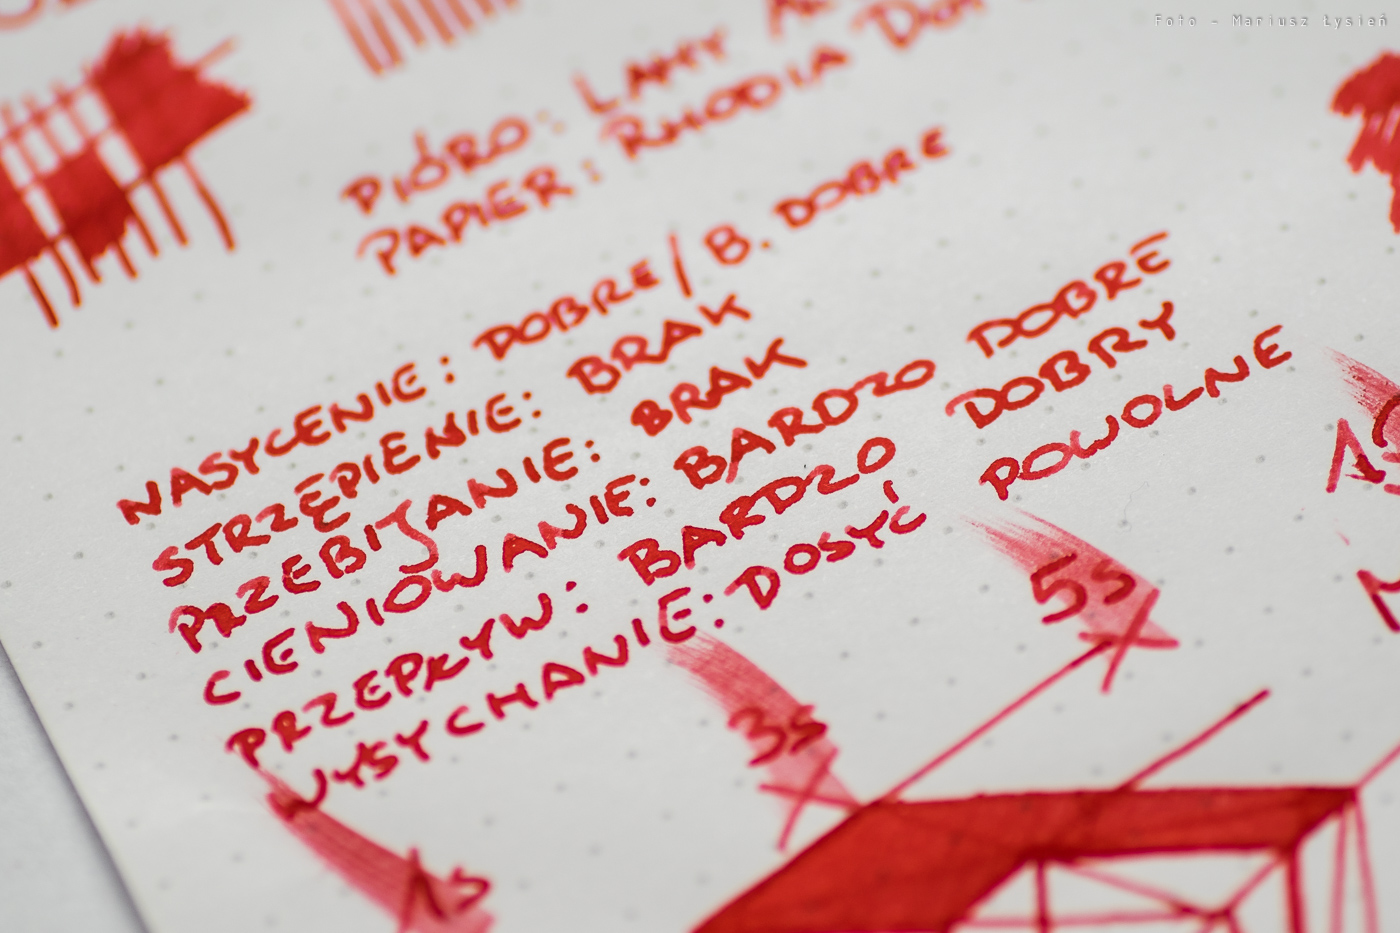 Foto - Mariusz Łysień
PIÓRO: LAMY
PAPIER: RHODIA DOT
NASYCENIE: DOBRE/B. DOBRE
STRZĘPIENIE: BRAK
PRZEBIJANIE: BRAK
CIENIOWANIE: BARDZO DOBRE
PRZEPŁYW: BARDZO DOBRY
WYSYCHANIE: DOSYĆ POWOLNE
5s
3s
1s